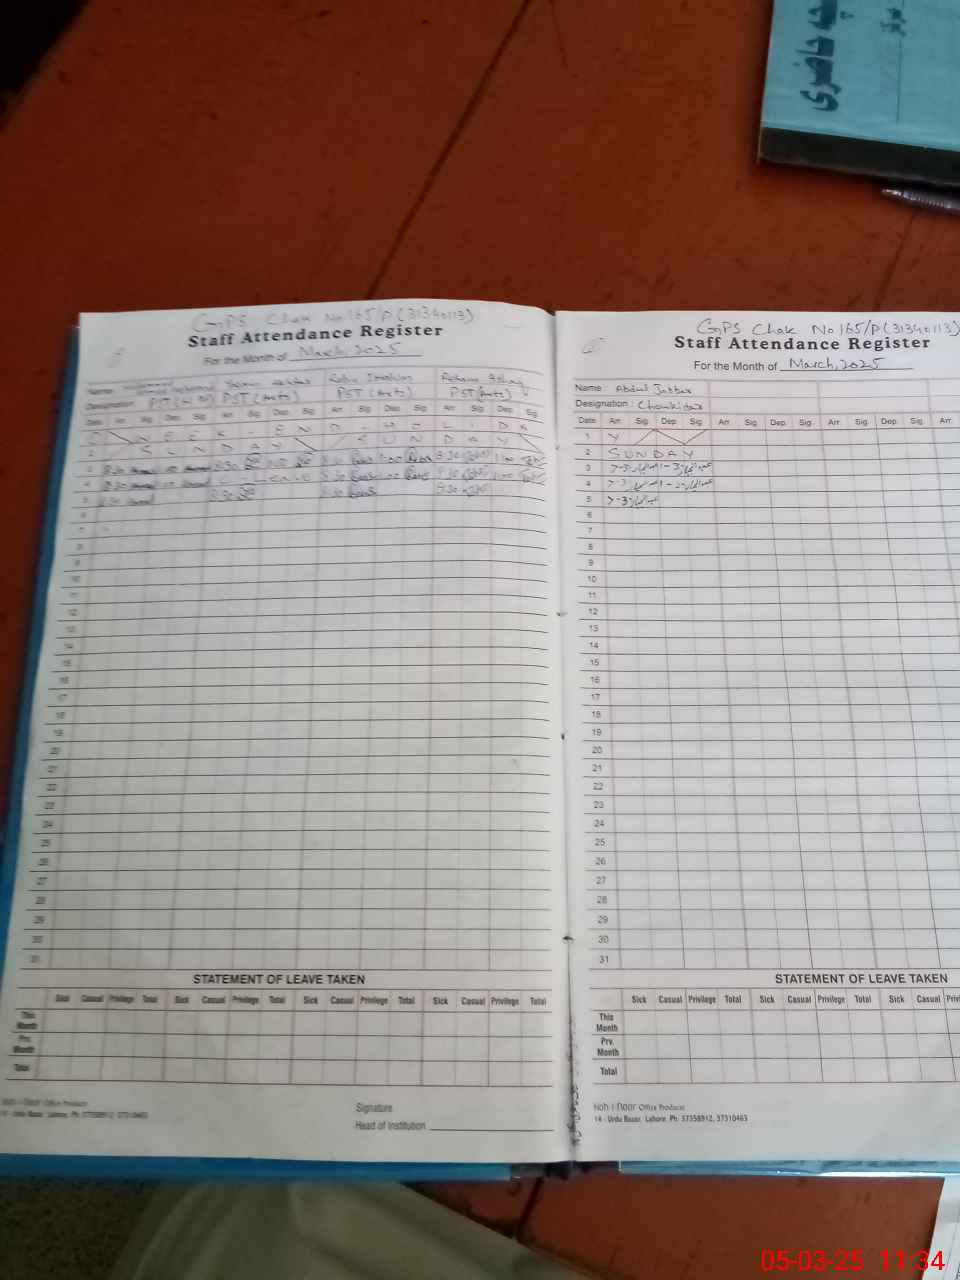 حاضری
GPS Chak No 165/P (31340113)
Staff Attendance Register
For the Month of March, 2025
Name
Designation PST (Arts) PST (Arts) PST (Arts)
Date Arr Sig Dep Sig Arr Sig Dep Sig Arr Sig Dep Sig Arr Sig Dep Sig
1 W E E K E N D H O L I D A
2 S U N D A Y S U N D A Y
3 8:30 8:30 8:30 1:00 8:30 1:00
4 8:30 Leave 8:30 8:30 1:00
5 8:30 8:30 8:30 8:30
6
7
8
9
10
11
12
13
14
15
16
17
18
19
20
21
22
23
24
25
26
27
28
29
30
31
STATEMENT OF LEAVE TAKEN
Sick Casual Privilege Total Sick Casual Privilege Total Sick Casual Privilege Total Sick Casual Privilege Total
This Month
Prv. Month
Total
Koh-i-Noor Office Products
14 - Urdu Bazar, Lahore. Ph: 37358912, 37310463
Signature
Head of Institution
GPS Chak No 165/P (31340113)
Staff Attendance Register
For the Month of March, 2025
Name : Abdul Jabbar
Designation : Chowkidar
Date Arr. Sig. Dep. Sig. Arr. Sig. Dep. Sig. Arr. Sig. Dep. Sig. Arr.
1 Y
2 SUNDAY
3
4
5
6
7
8
9
10
11
12
13
14
15
16
17
18
19
20
21
22
23
24
25
26
27
28
29
30
31
STATEMENT OF LEAVE TAKEN
Sick Casual Privilege Total Sick Casual Privilege Total Sick Casual
This Month
Prv. Month
Total
Koh-i-Noor Office Products
14 - Urdu Bazar, Lahore. Ph: 37358912, 37310463
05-03-25 11:34